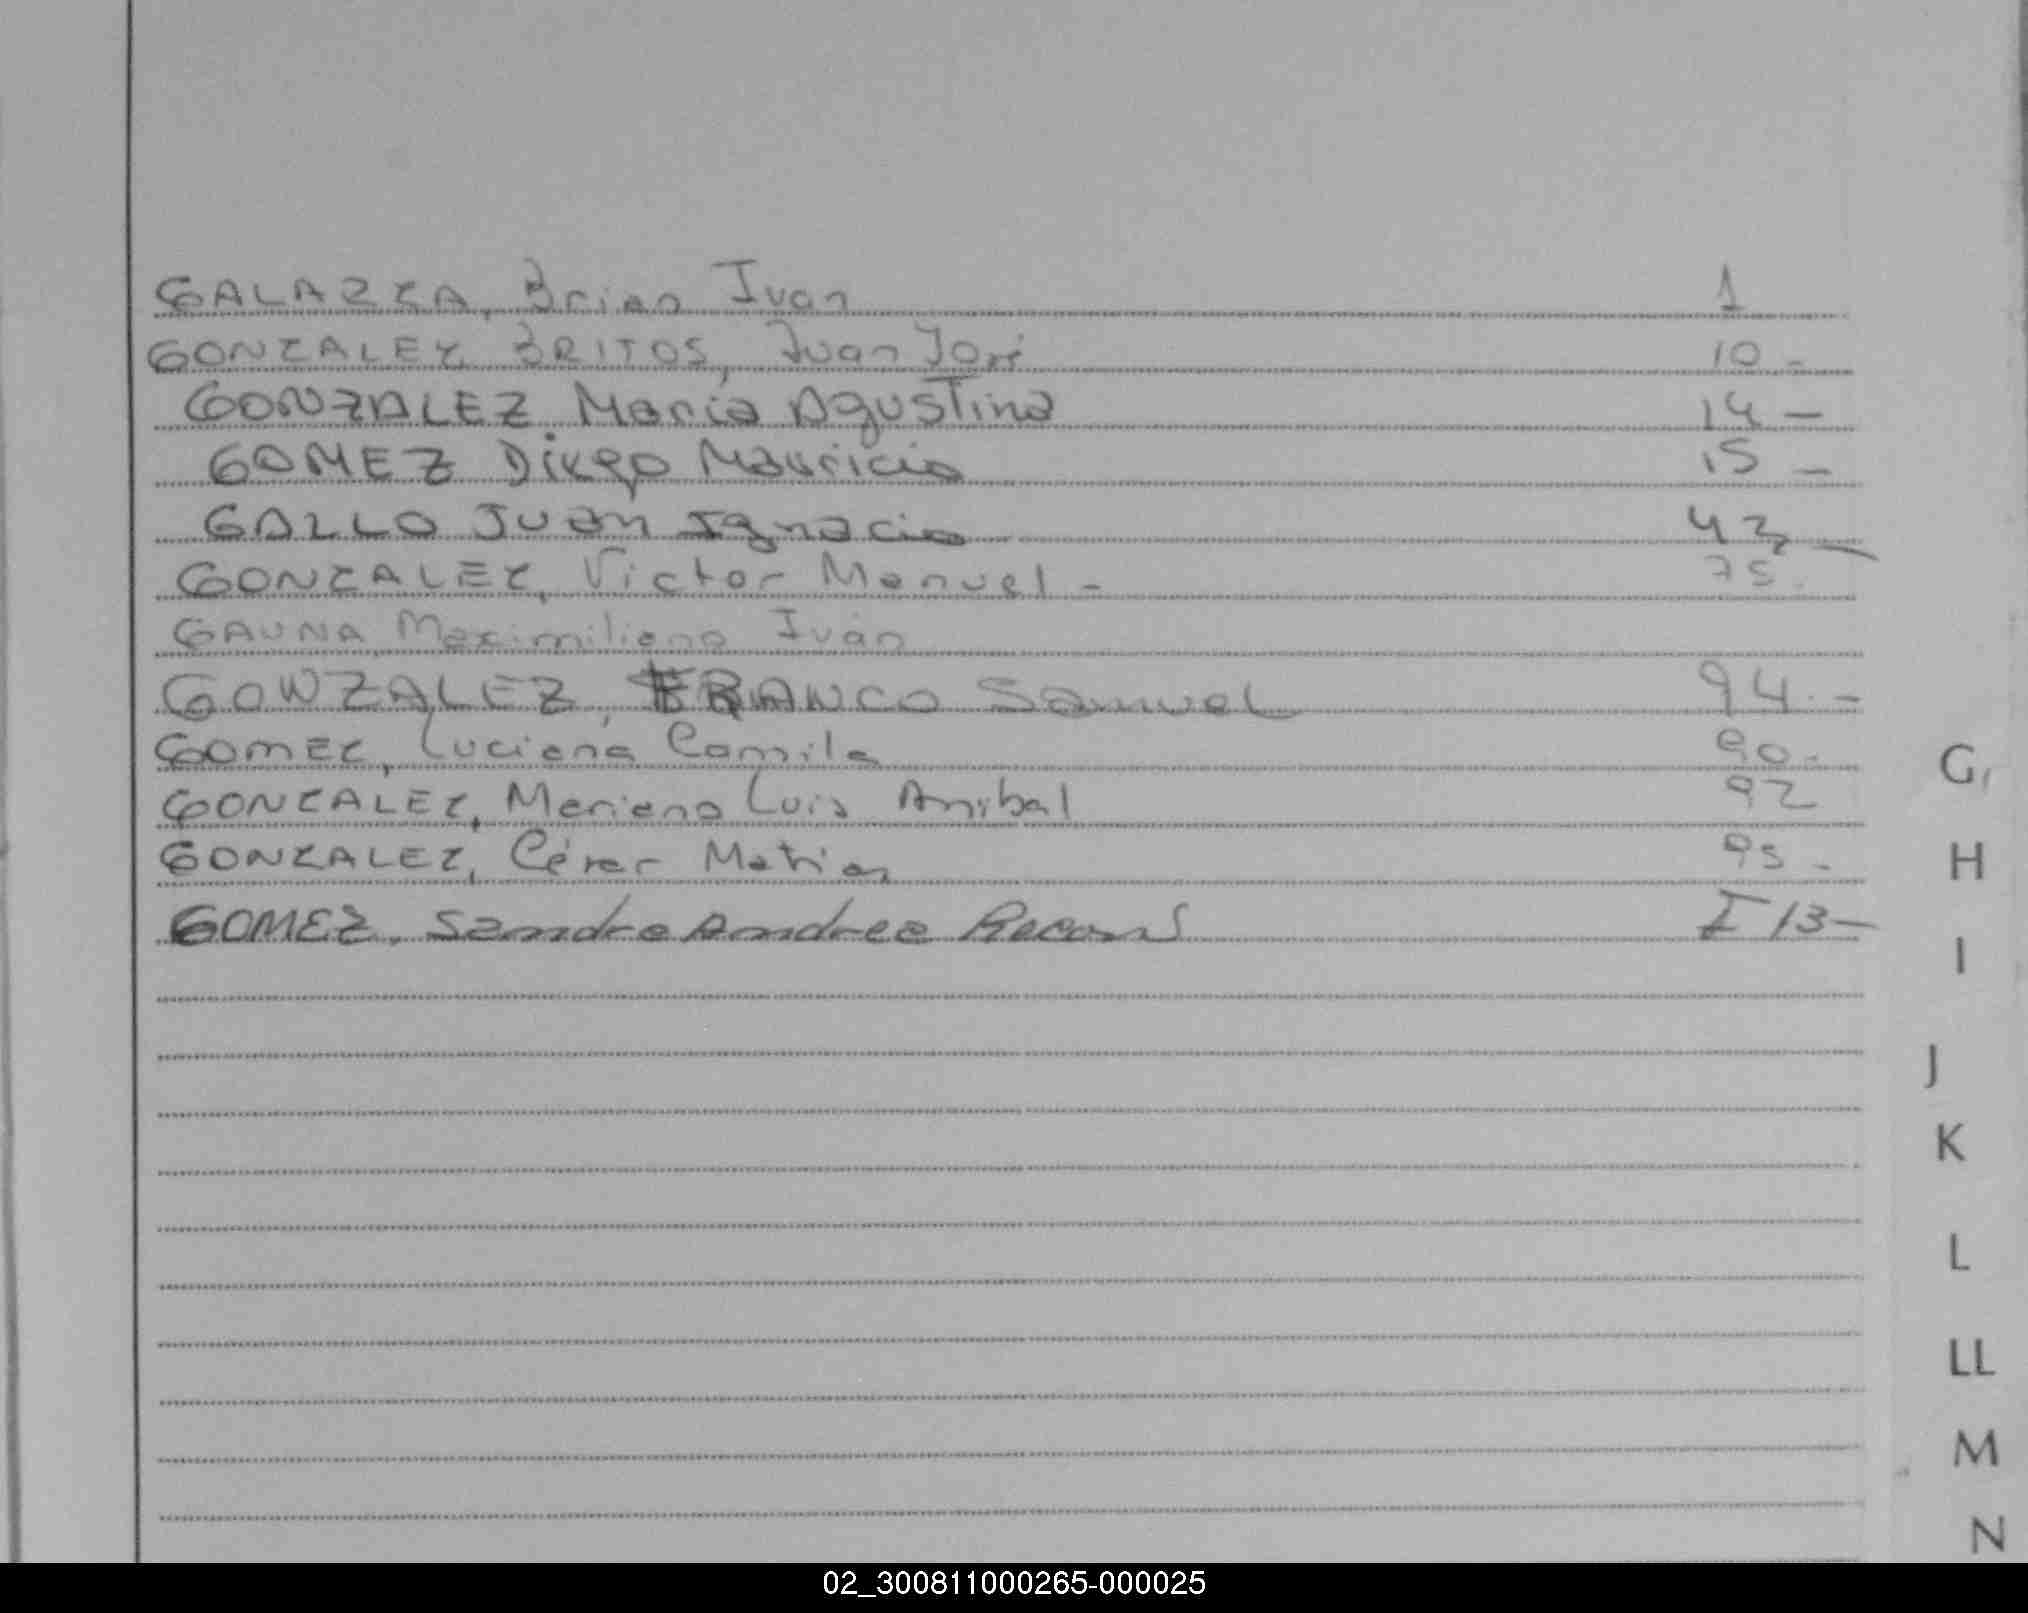 GALAZZA, Brian Ivan 1
GONZALEZ BRITOS, Juan José 10 -
GONZALEZ Maria Agustina 14 -
GOMEZ Diego Mauricio 15 -
GALLO Juan Ignacio 43 -
GONZALEZ, Victor Manuel - 75.
GAUNA, Maximiliano Iván
GONZALEZ, FRANCO Samuel 94.-
GOMEZ, Luciana Camila 90.
GONZALEZ, Mariano Luis Anibal 92
GONZALEZ, César Matias 95 -
GOMEZ, Sandra Andrea I 13 -
G
H
I
J
K
L
LL
M
N
02_300811000265-000025